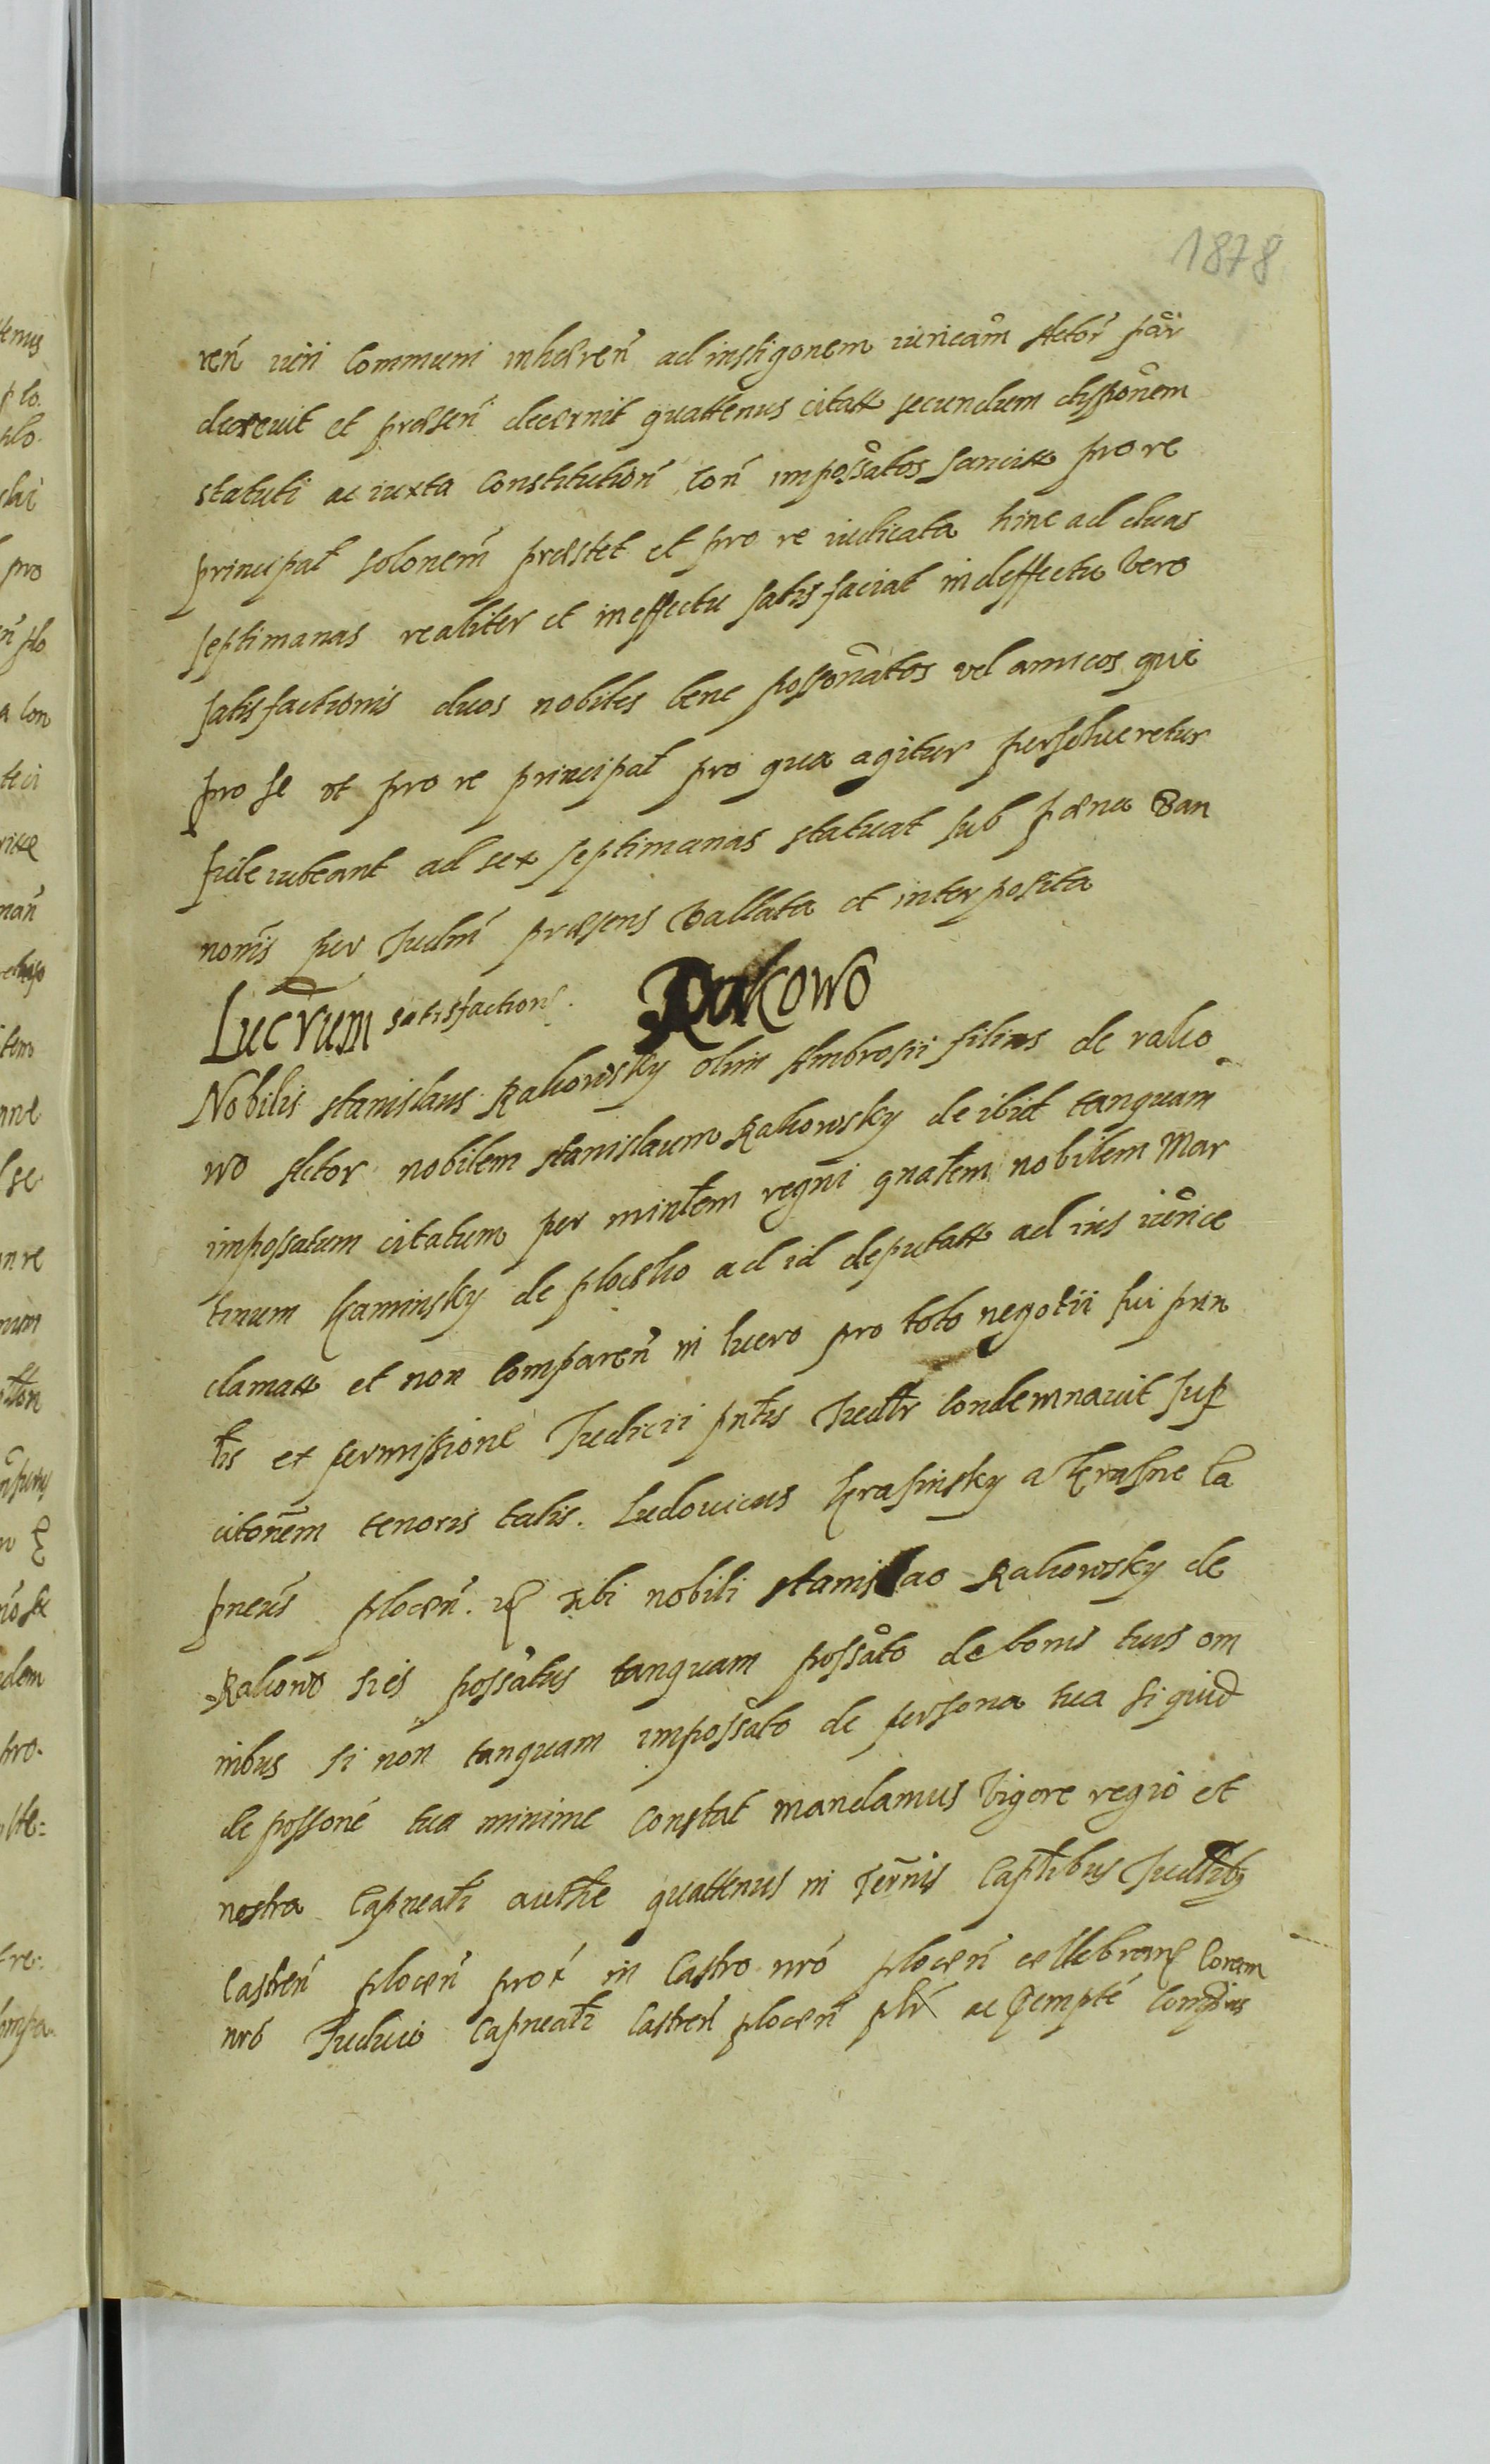 1878
ren̄ iuri Communi inhæren̄ ad instigonem iuricam̊ Actor̄ par̊
decrevit et præsen̄ decernit quattenus citatt secundum disponem̊
statuti ac iuxta Constitution̄ Con̄ imposs̊atos sancitt pro re
principal̄ solonem̄ præstet et pro re iudicata hinc ad duas
septimanas realiter et in effectu satisfaciat in deffectu vero
satisfactionis duos nobiles bene posson̄atos vel amicos qui
pro se et pro re principal̄ pro qua agitur persolueretur
fideiubeant ad sex septimanas statuat sub pœna Ban
nonis̄ per Judm̄ præsens vallata et interposita
Lucrum satisfaction̄. Rakowo
Nobilis stanislaus Rakowsky olim Ambrosii filius de rako
wo Actor nobilem stanislaum Rakowsky de ibid̄ tanquam
impossatum citatum per mintem̄ regni gnatem̄ nobilem Mar
tinum Kaminsky de plocsko ad id deputatt ad ius iur̊ice
clamatt et non Comparen̄ in lucro pro toto negotii sui prin
tis̄ ex permissione Judicii pntis̄ Judtr̄ Condemnavit sup
citonem̄ tenoris talis. Ludovicus Krasinsky a Krasne Ca
pneus̄ plocen̄. tibi nobili stanislao Rakowsky de
Rakowo sies possatus tanquam poss̊ato de bonis tuis om
nibus si non̄ tanquam imposs̊ato de persona tua siquid
de possonē tua minime Constat mandamus vigore regio et
nostra Capneali̊ authte̊ quattenus in Ter̄nis Captlibus Judlibꝫ
Castren̄ plocen̄ prox̄ in Castro nr̄o plocen̄ cellebran Coram
nr̄o Judicio Capneali̊ Castren̄ plocen̄ plr̄ ac